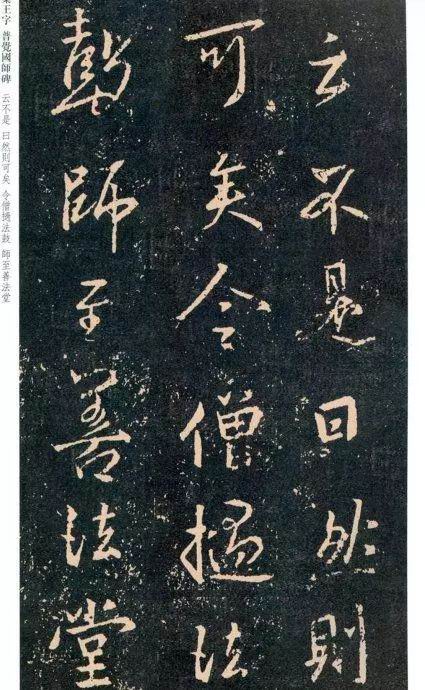 云不是曰然則
可矣令僧撾法
鼓師至善法堂
集王字 普覺國師碑 云不是 曰然則可矣 令僧撾法鼓 師至善法堂